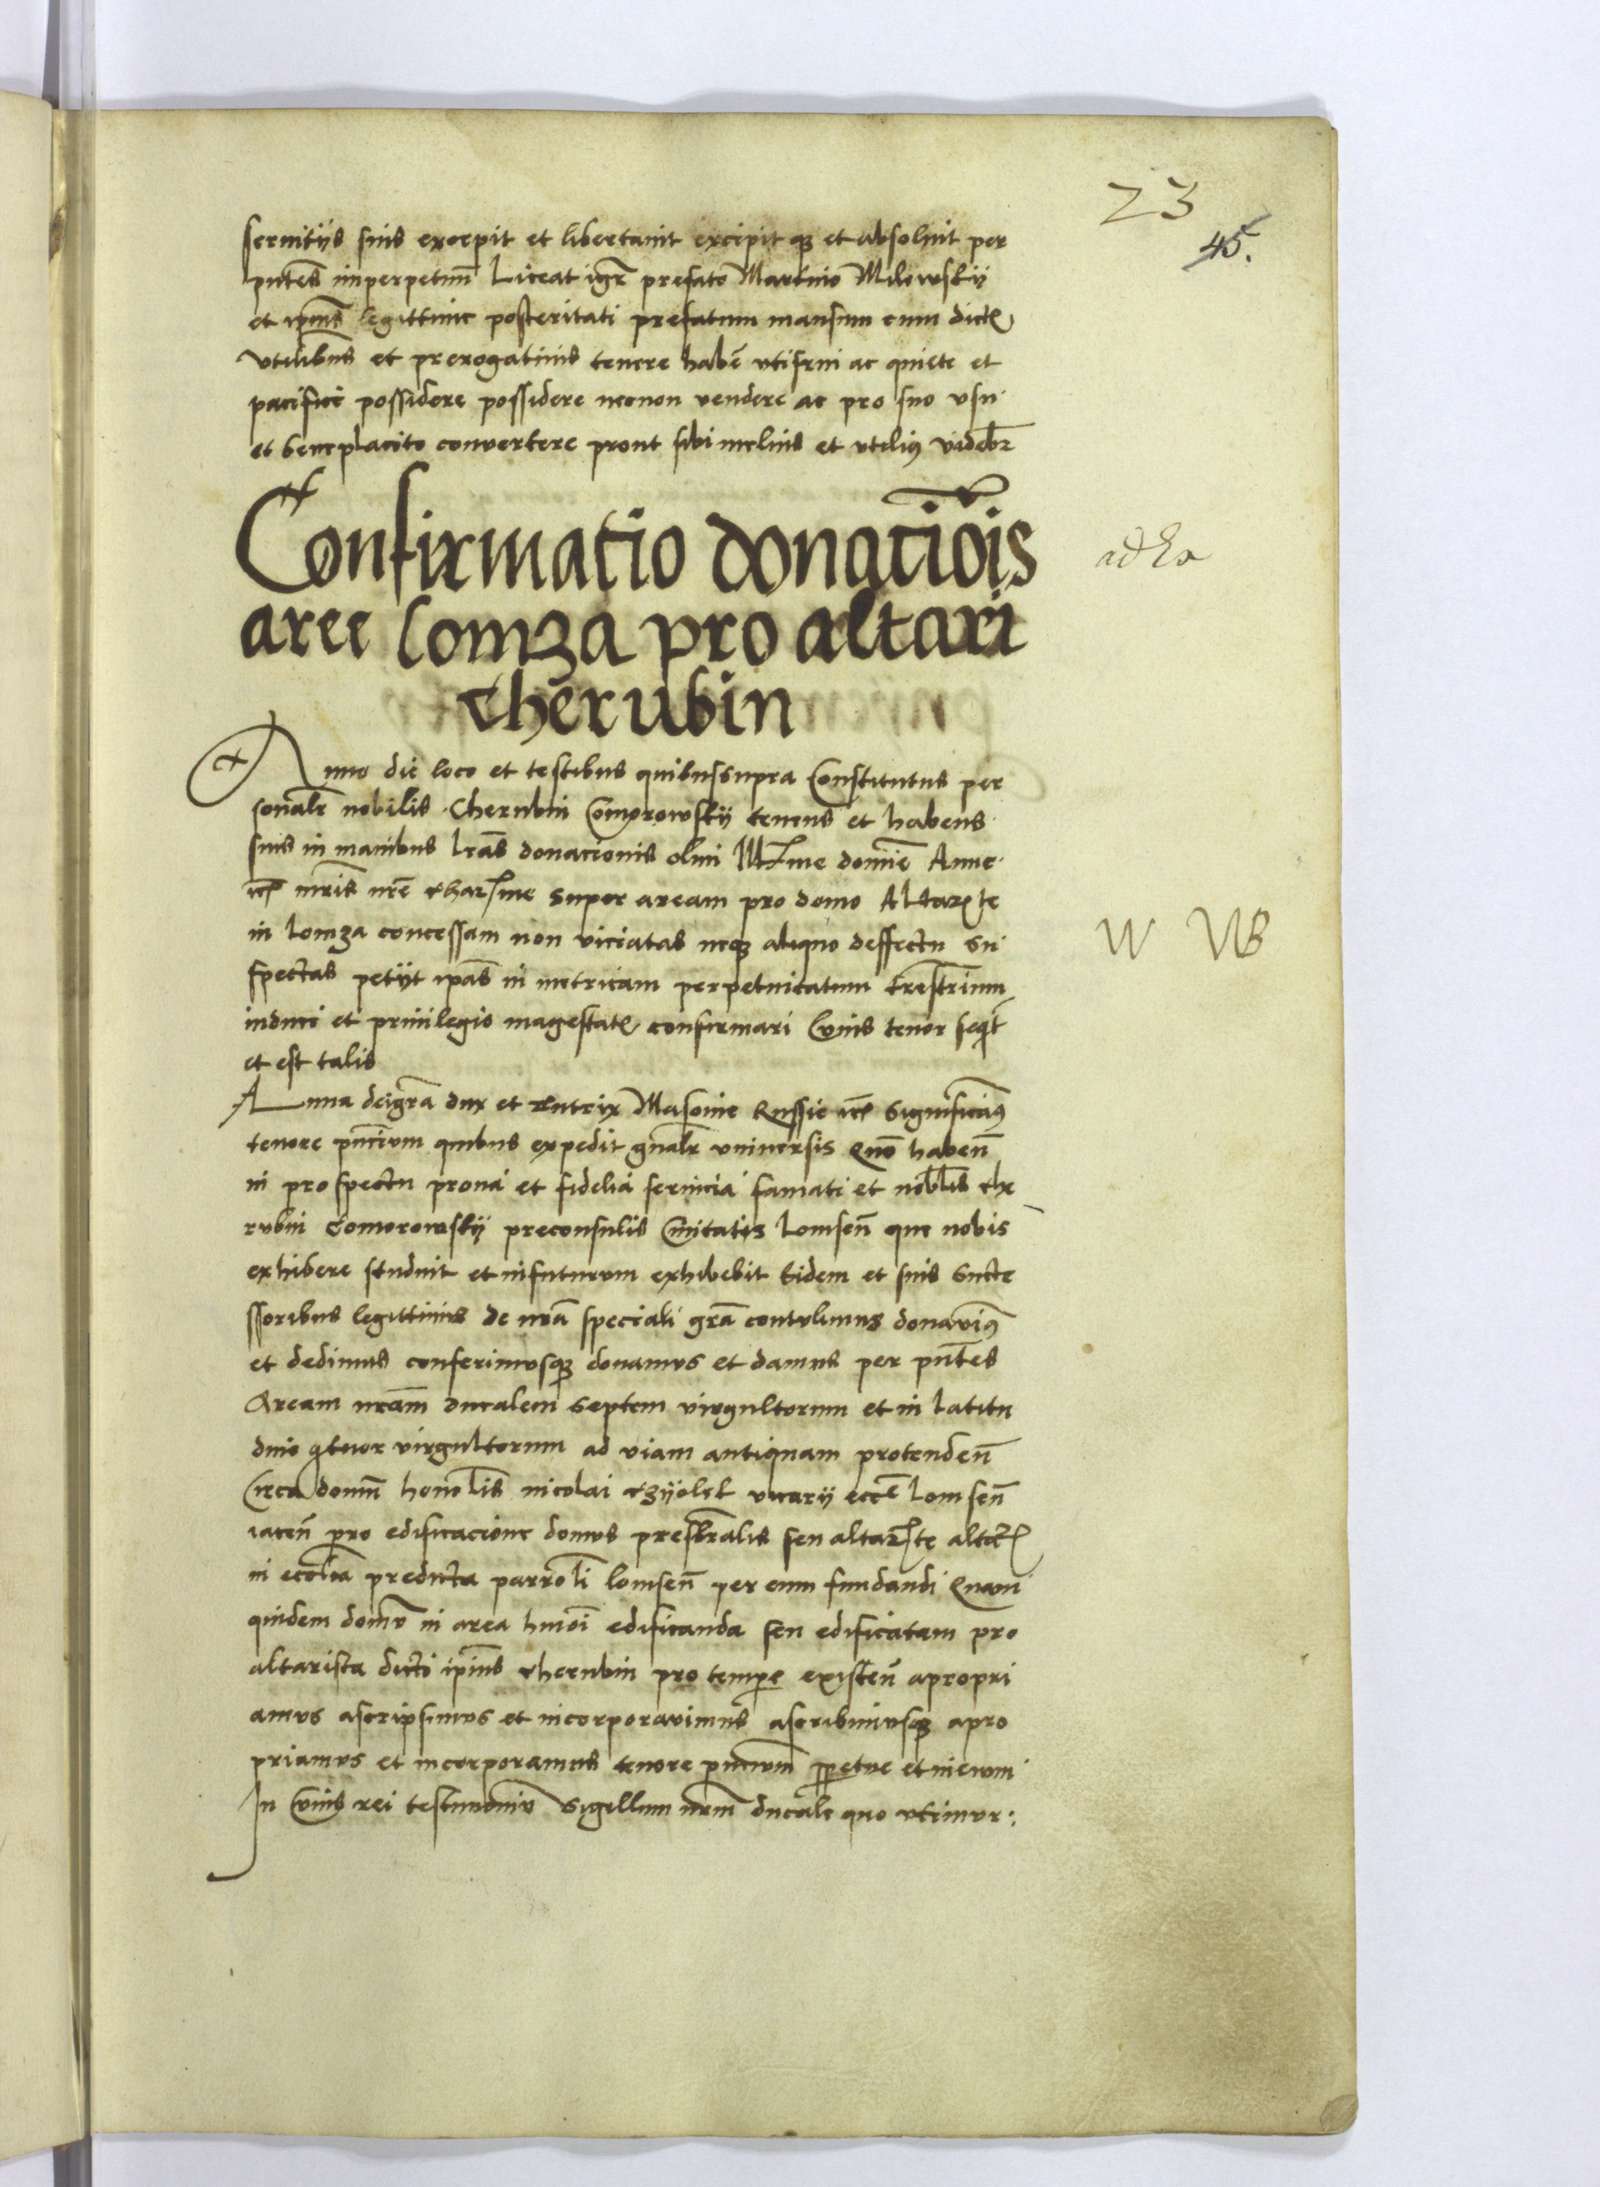 23
45.
seruitijs suis excepit et libertauit excipit q3 et absoluit per
pntes imperpetuu Liceat igr prefato Martino Milowskij
et ipius legittime posteritati prefatum mansum cum dict
vtilibus et prerogatiuis tenere haben vtifrui ac quiete et
pacifice possidere possidere necnon vendere ac pro suo vsu
et beneplacito convertere prout sibi melius et vtilius videbr
Confirmatio donatiois
aree Lomza pro altari
Cherubin
ad Ex
Anno die loco et testibus quibussupra Constitutus per
sonalr nobilis Cherubin Comorowskij tenens et habens
suis in manibus lras donacionis olim Illme domie Anne
etc mris nre charme super aream pro domo Altarte
in Lomza concessam non viciatas neq3 aliquo deffectu su
spectas petijt ipas in metricam perpetuitatum trestrium
induci et priuilegio magestat confirmari Cuius tenor seqt
et est talis
W WS
Anna deigra dux et tutrix Masouie Russie etc Significam9
tenore pncium quibus expedit gnalr vniuersis Quo haben
in prospectu prona et fidelia seruicia famati et noblis che
rubin Comorowskij preconsulis Ciuitatis Lomsen que nobis
exhibere studuit et infuturum exhibebit Eidem et suis succe
ssoribus legittimis de nra speciali gra contulimus donavim9
et dedimus conferimusq3 donamus et damus per pntes
Aream nram ducalem septem virgultorum et in latitu
dine qtuor virgultorum ad viam antiquam protenden
Circa domu honolis nicolai czyolek vicarij eccle Lomsen
iacen pro edificacione domus presbralis seu altarte altar
in ecclia predicta parroli lomsen per eum fundandi Quam
quidem domu in area hmoi edificanda seu edificatam pro
altarista dicti ipius cherubin pro tempe existen apropri
amus ascripsimus et incorporauimus ascribimusq3 apro
priamus et incorporamus tenore pncium ppetue et in eum
In Cuius rei testimoniu Sigillum nrm ducale quo vtimur: